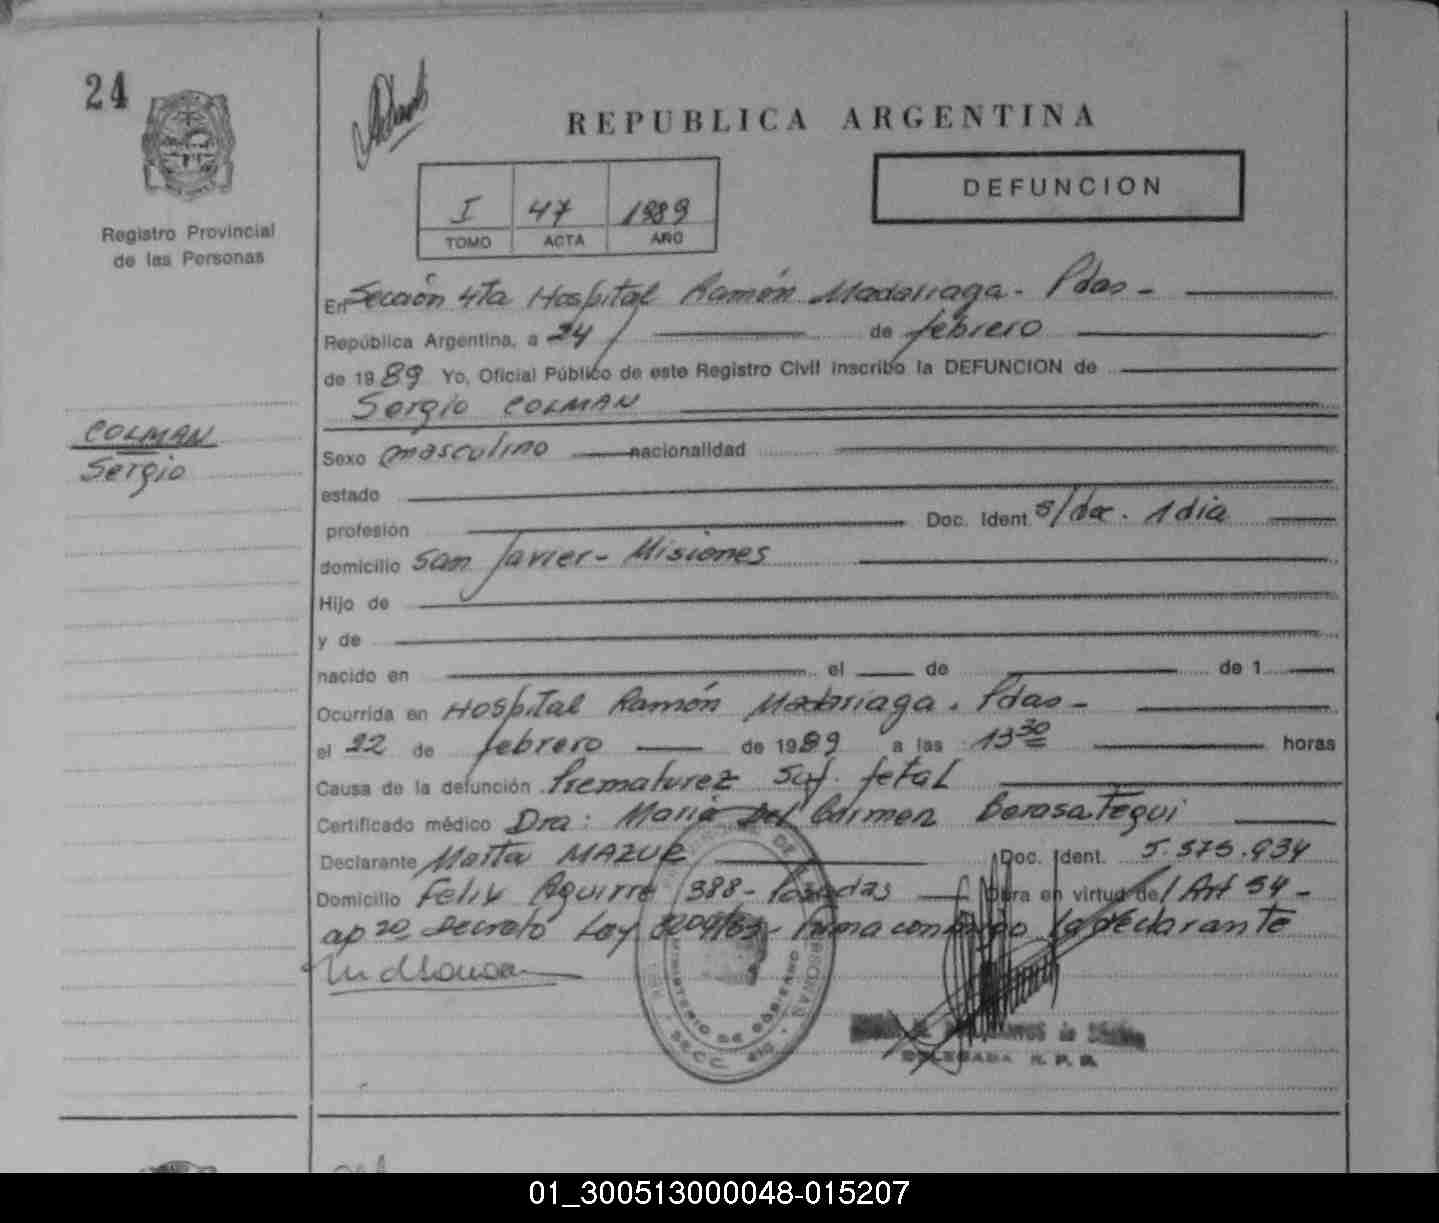 24
REPUBLICA ARGENTINA
DEFUNCION
I 47 1989
TOMO ACTA AÑO
Registro Provincial
de las Personas
En Sección 4Ta Hospital Ramón Madariaga - Pdas -
República Argentina, a 24 de febrero
de 1989 Yo, Oficial Público de este Registro Civil inscribo la DEFUNCION de
Sergio COLMAN
COLMAN
Sergio
Sexo masculino nacionalidad
estado
profesión Doc. Ident. s/doc. 1 dia
domicilio San Javier - Misiones
Hijo de
y de
nacido en el de de 1
Ocurrida en Hospital Ramón Madariaga. Pdas -
el 22 de febrero de 1989 a las 13 30 horas
Causa de la defunción Prematurez Suf. fetal
Certificado médico Dra: Maria Del Carmen Berasategui
Declarante Marta MAZUR Doc. Ident. 5.575.934
Domicilio Felix Aguirre 388 - Posadas Obra en virtud del Art 54 -
ap 2º Decreto Ley 8204/63 - Firma conmigo la declarante
MINISTERIO DE GOBIERNO
DELEGADA R. P. P.
01_300513000048-015207